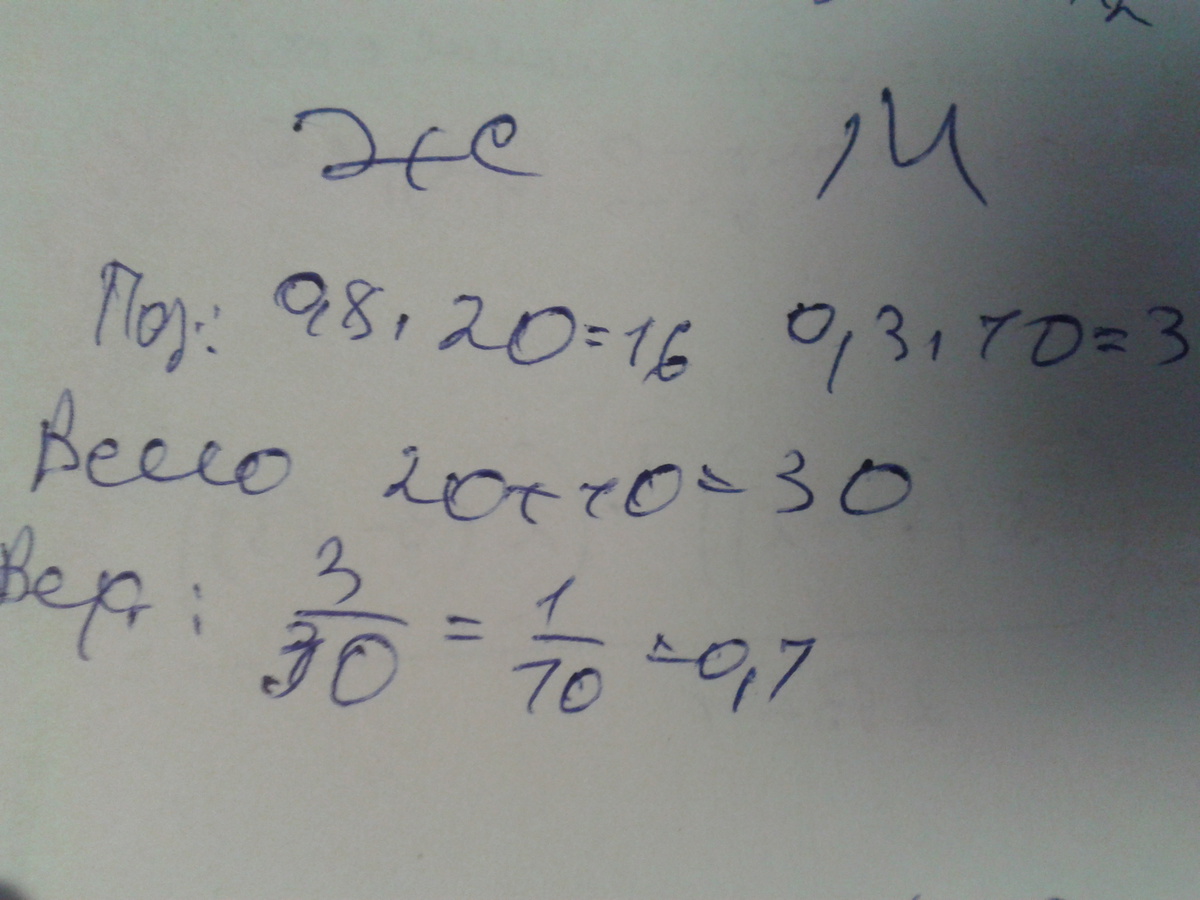 Ж М
Поз.: 0,8 · 20 = 16 0,3 · 10 = 3
Всего 20 + 10 = 30
Вер.: 3/30 = 1/10 = 0,1